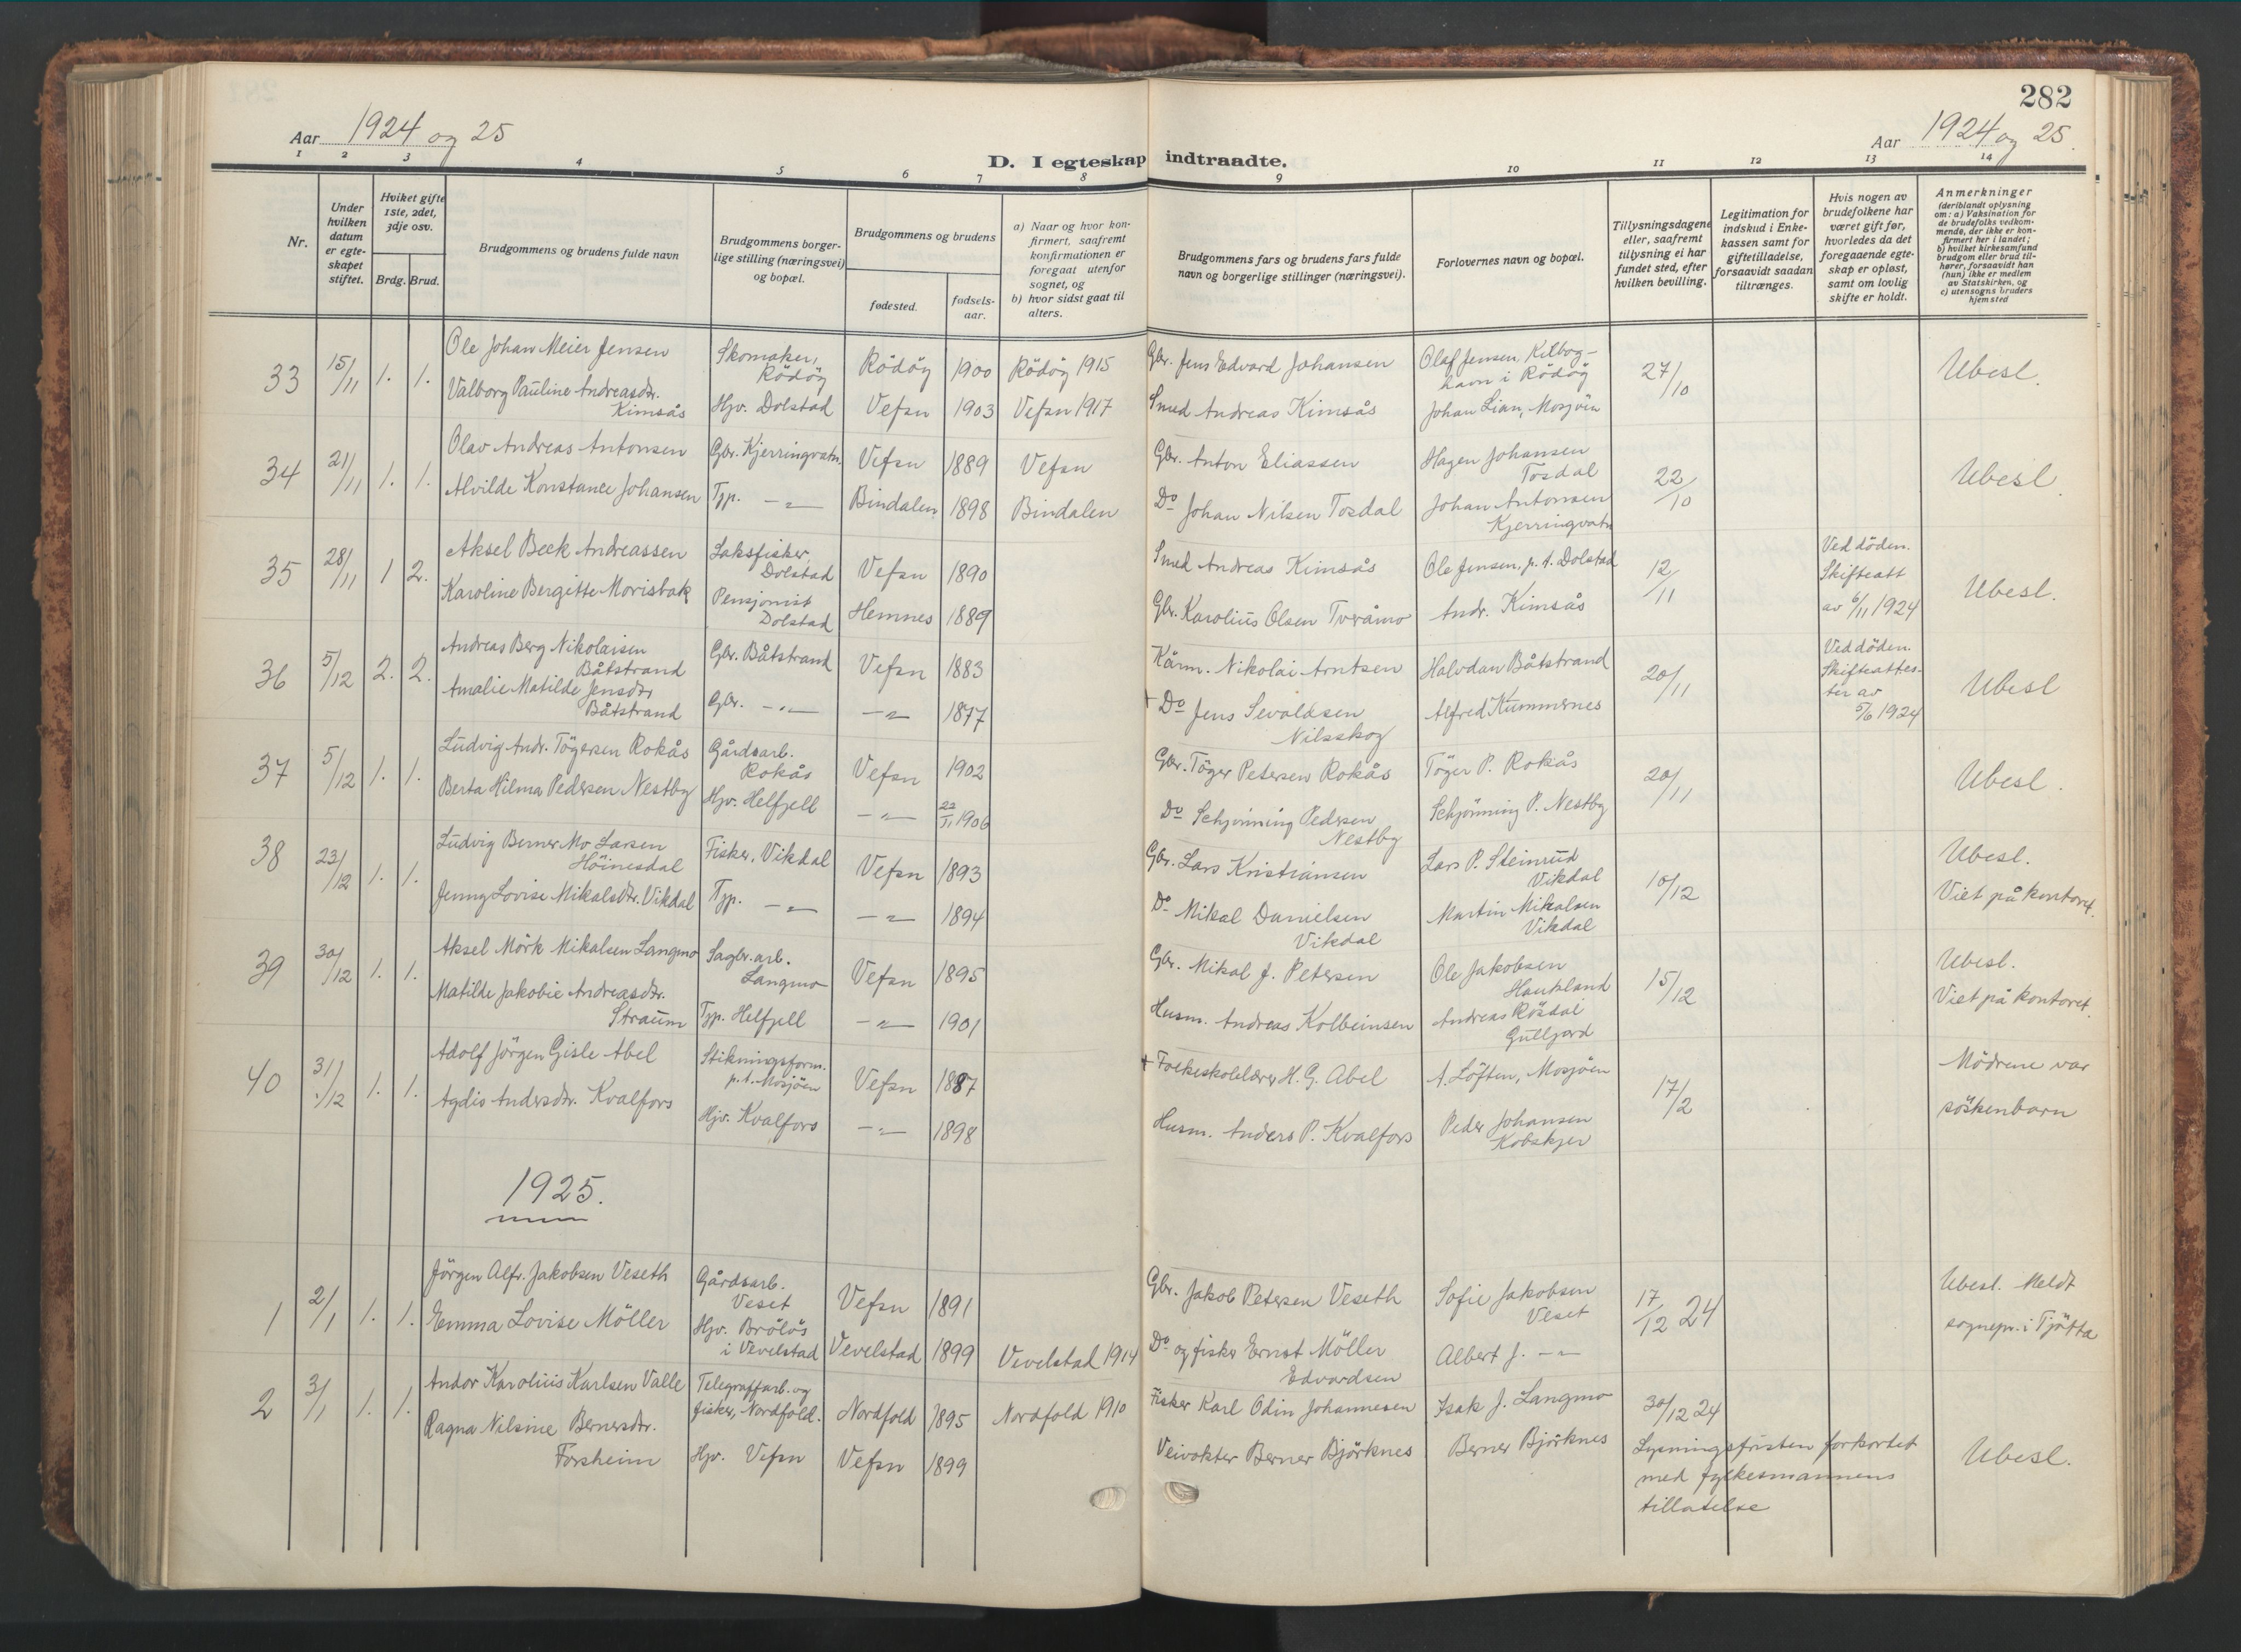 282
Aar 1924 og 25
Aar 1924 og 25.
D. I egteskap indtraadte.
1 2 3 4 5 6 7 8 9 10 11 12 13 14
Nr.
Under hvilken datum er egteskapet stiftet.
Hvilket gifte 1ste, 2det, 3dje osv.
Brdg. Brud.
Brudgommens og brudens fulde navn
Brudgommens borgerlige stilling (næringsvei) og bopæl.
Brudgommens og brudens
fødested.
fødselsaar.
a) Naar og hvor konfirmert, saafremt konfirmationen er foregaat utenfor sognet, og
b) hvor sidst gaat til alters.
Brudgommens fars og brudens fars fulde navn og borgerlige stillinger (næringsvei).
Forlovernes navn og bopæl.
Tillysningsdagene eller, saafremt tillysning ei har fundet sted, efter hvilken bevilling.
Legitimation for indskud i Enkekassen samt for giftetilladelse, forsaavidt saadan tiltrænges.
Hvis nogen av brudefolkene har været gift før, hvorledes da det foregaaende egteskap er opløst, samt om lovlig skifte er holdt.
Anmerkninger
(deriblandt oplysning om: a) Vaksination for de brudefolks vedkommende, der ikke er konfirmert her i landet; b) hvilket kirkesamfund brudgom eller brud tilhører, forsaavidt han (hun) ikke er medlem av Statskirken, og c) utensogns bruders hjemsted
33 15/11 1. 1. Ole Johan Meier Jensen Skomaker, Rödöy Rödöy 1900 Rödöy 1915 Gbr. Jens Edvard Johansen Olaf Jensen, Kilboghavn i Rödöy 27/10 Ubesl.
Valborg Pauline Andreasdtr. Kimsås Hjv. Dolstad Vefsn 1903 Vefsn 1917 Smed Andreas Kimsås Johan Lian, Mosjöen
34 21/11 1. 1. Olav Andreas Antonsen Gbr. Kjerringvatn Vefsn 1889 Vefsn Gbr. Anton Eliassen Hagen Johansen Tosdal 22/10 Ubesl
Alvilde Konstance Johansen Tjp. -"- Bindalen 1898 Bindalen Do Johan Nilsen Tosdal Johan Antonsen Kjerringvatn
35 28/11 1 2. Aksel Beck Andreassen Laksfisker, Dolstad Vefsn 1890 Smed Andreas Kimsås Ole Jensen, p. t. Dolstad 12/11 Ved döden. Skifteatt av 6/11 1924 Ubesl.
Karoline Bergitte Morisbak Pensjonist Dolstad Hemnes 1889 Gbr. Karolius Olsen Tveråmo Andr. Kimsås
36 5/12 2. 2. Andreas Berg Nikolaisen Båtstrand Gbr. Båtstrand Vefsn 1883 Kårm. Nikolai Arntsen Halvdan Båtstrand 20/11 Ved döden. Skifteattester av 5/6 1924 Ubesl
Amalie Matilde Jensdtr Båtstrand Gbr. -"- -"- 1877 + Do Jens Sevaldsen Nilsskog Alfred Kummernes
37 5/12 1. 1. Ludvig Andr. Tögersen Rokås Gårdsarb. Rokås Vefsn 1902 Gbr. Töger Petersen Rokås Töger P. Rokås 20/11 Ubesl.
Berta Hilma Pedersen Nestby Hjv. Helfjell -"- 22/11 1906 Do Schjönning Pedersen Nestby Schjönning P. Nestby
38 23/12 1. 1. Ludvig Berner Mo Larsen Höinesdal Fisker, Vikdal Vefsn 1893 Gbr. Lars Kristiansen Lars P. Steinrud Vikdal 10/12 Ubesl.
Jenny Lovise Mikalsdtr. Vikdal Tjp. -"- -"- 1894 Do Mikal Danielsen Vikdal Martin Mikalsen Vikdal Viet på kontoret.
39 30/12 1. 1. Aksel Mörk Mikalsen Langmo Sagbr.arb. Langmo Vefsn 1895 Gbr. Mikal J. Petersen Ole Jakobsen Haukland 15/12 Ubesl.
Matilde Jakobie Andreasdtr. Straum Tjp. Helfjell -"- 1901 Husm. Andreas Kolbeinsen Andreas Rösdal Gulljord Viet på kontoret.
40 31/12 1. 1. Adolf Jörgen Gisle Abel Stikningsform. p.t. Mosjöen Vefsn 1887 + Folkeskolelærer H. G. Abel A. Löften, Mosjöen 17/2 Mödrene var
Agdis Andersdtr. Kvalfors Hjv. Kvalfors -"- 1898 Husm. Anders P. Kvalfors Peder Johansen Kobskjer söskenbarn
1925.
1 2/1 1. 1. Jörgen Alfr. Jakobsen Veseth Gårdsarb. Veset Vefsn 1891 Gbr. Jakob Petersen Veseth Sofie Jakobsen Veset 17/12 24 Ubesl. Meldt
Emma Lovise Möller Hjv. Brölös i Vevelstad Vevelstad 1899 Vevelstad 1914 Do og fisker Ernst Möller Edvardsen Albert J. -"- sognepr. i Tjötta
2 3/1 1. 1. Andor Karolius Karlsen Valle Telegrafarb. og fisker, Nordfold. Nordfold 1895 Nordfold 1910 Fisker Karl Odin Johannesen Isak J. Langmo 30/12 24
Ragna Nilsine Bernersdtr. Forsheim Hjv. Vefsn Vefsn 1899 Veivokter Berner Björknes Berner Björknes Lysningsfristen forkortet med fylkesmannens tillatelse Ubesl.